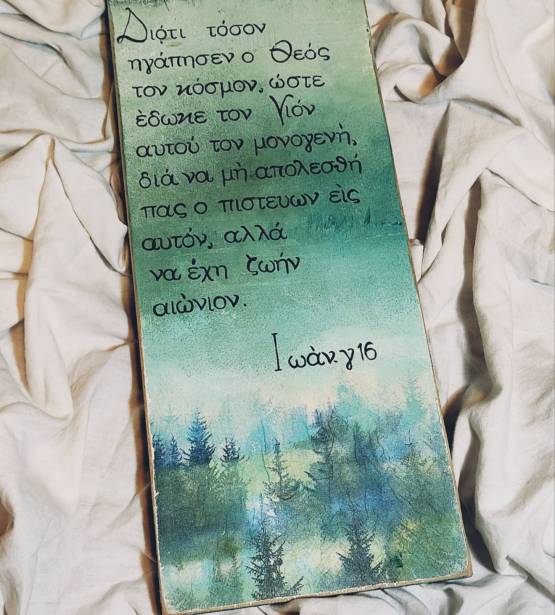 Διότι τόσον
ηγάπησεν ο Θεός
τον κόσμον, ώστε
ὲδωκε τον Υιόν
αυτού τον μονογενὴ,
διά να μὴ απολεσθή
πας ο πιστευων εὶς
αυτόν, αλλά
να έχη ζωήν
αιώνιον.
Ιωὰν. γ 16